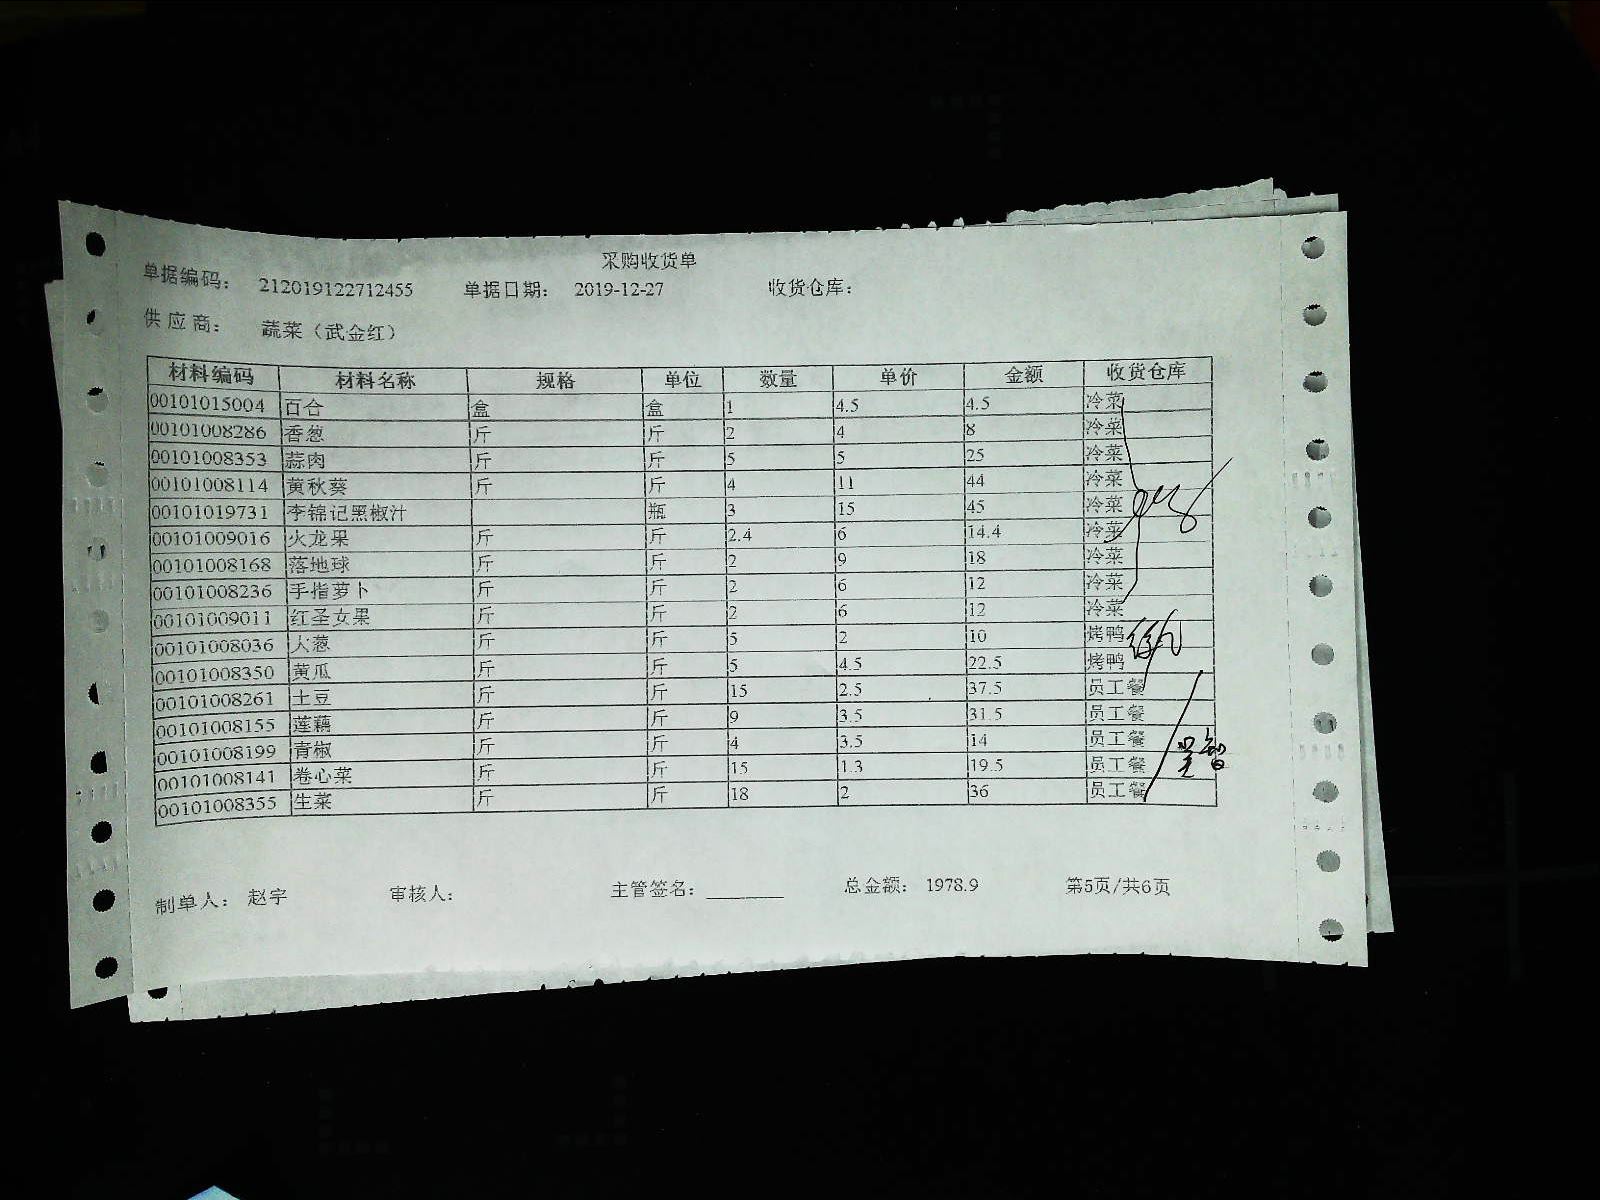 采购收货单
单据编码： 212019122712455 单据日期： 2019-12-27 收货仓库：
供应商： 蔬菜（武金红）
材料编码 材料名称 规格 单位 数量 单价 金额 收货仓库
00101015004 百合 盒 盒 1 4.5 4.5 冷菜
00101008286 香葱 斤 斤 2 4 8 冷菜
00101008353 蒜肉 斤 斤 5 5 25 冷菜
00101008114 黄秋葵 斤 斤 4 11 44 冷菜
00101019731 李锦记黑椒汁 瓶 3 15 45 冷菜
00101009016 火龙果 斤 斤 2.4 6 14.4 冷菜
00101008168 落地球 斤 斤 2 9 18 冷菜
00101008236 手指萝卜 斤 斤 2 6 12 冷菜
00101009011 红圣女果 斤 斤 2 6 12 冷菜
00101008036 大葱 斤 斤 5 2 10 烤鸭
00101008350 黄瓜 斤 斤 5 4.5 22.5 烤鸭
00101008261 土豆 斤 斤 15 2.5 37.5 员工餐
00101008155 莲藕 斤 斤 9 3.5 31.5 员工餐
00101008199 青椒 斤 斤 4 3.5 14 员工餐
00101008141 卷心菜 斤 斤 15 1.3 19.5 员工餐
00101008355 生菜 斤 斤 18 2 36 员工餐
制单人： 赵宇 审核人： 主管签名：________ 总金额： 1978.9 第5页/共6页